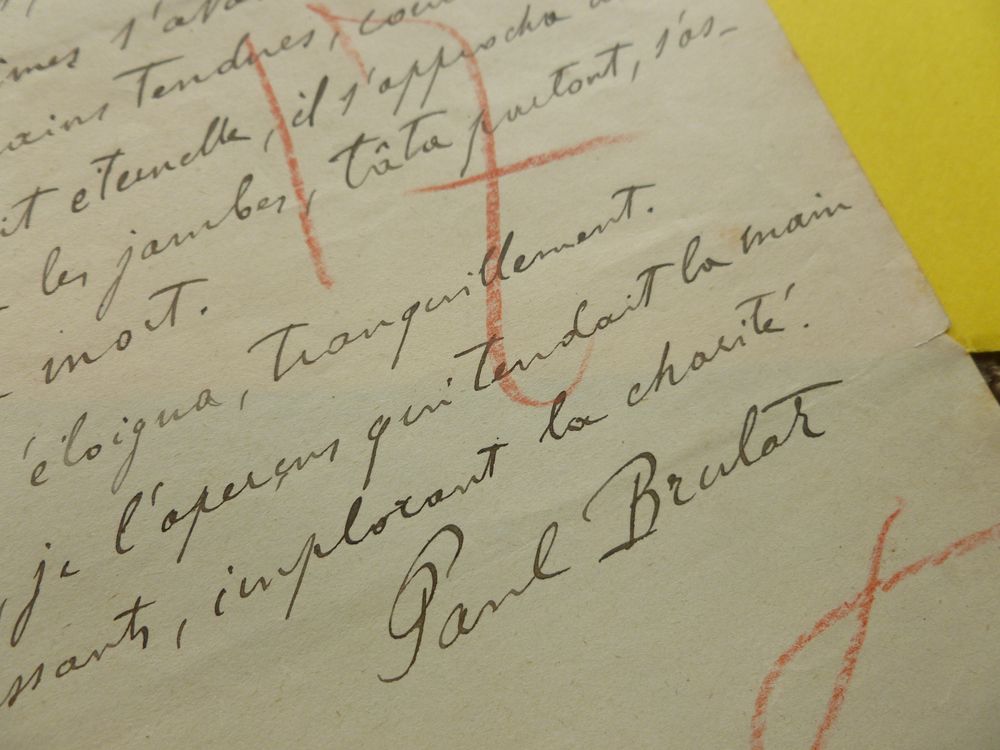 s'ava
mains tendres, cou
it éternelle, il s'approcha d
les jambes, tâta partout, s'as-
mot.
éloigna, tranquillement.
, je l'aperçus qui tendait la main
ssants, implorant la charité.
Paul Brulat